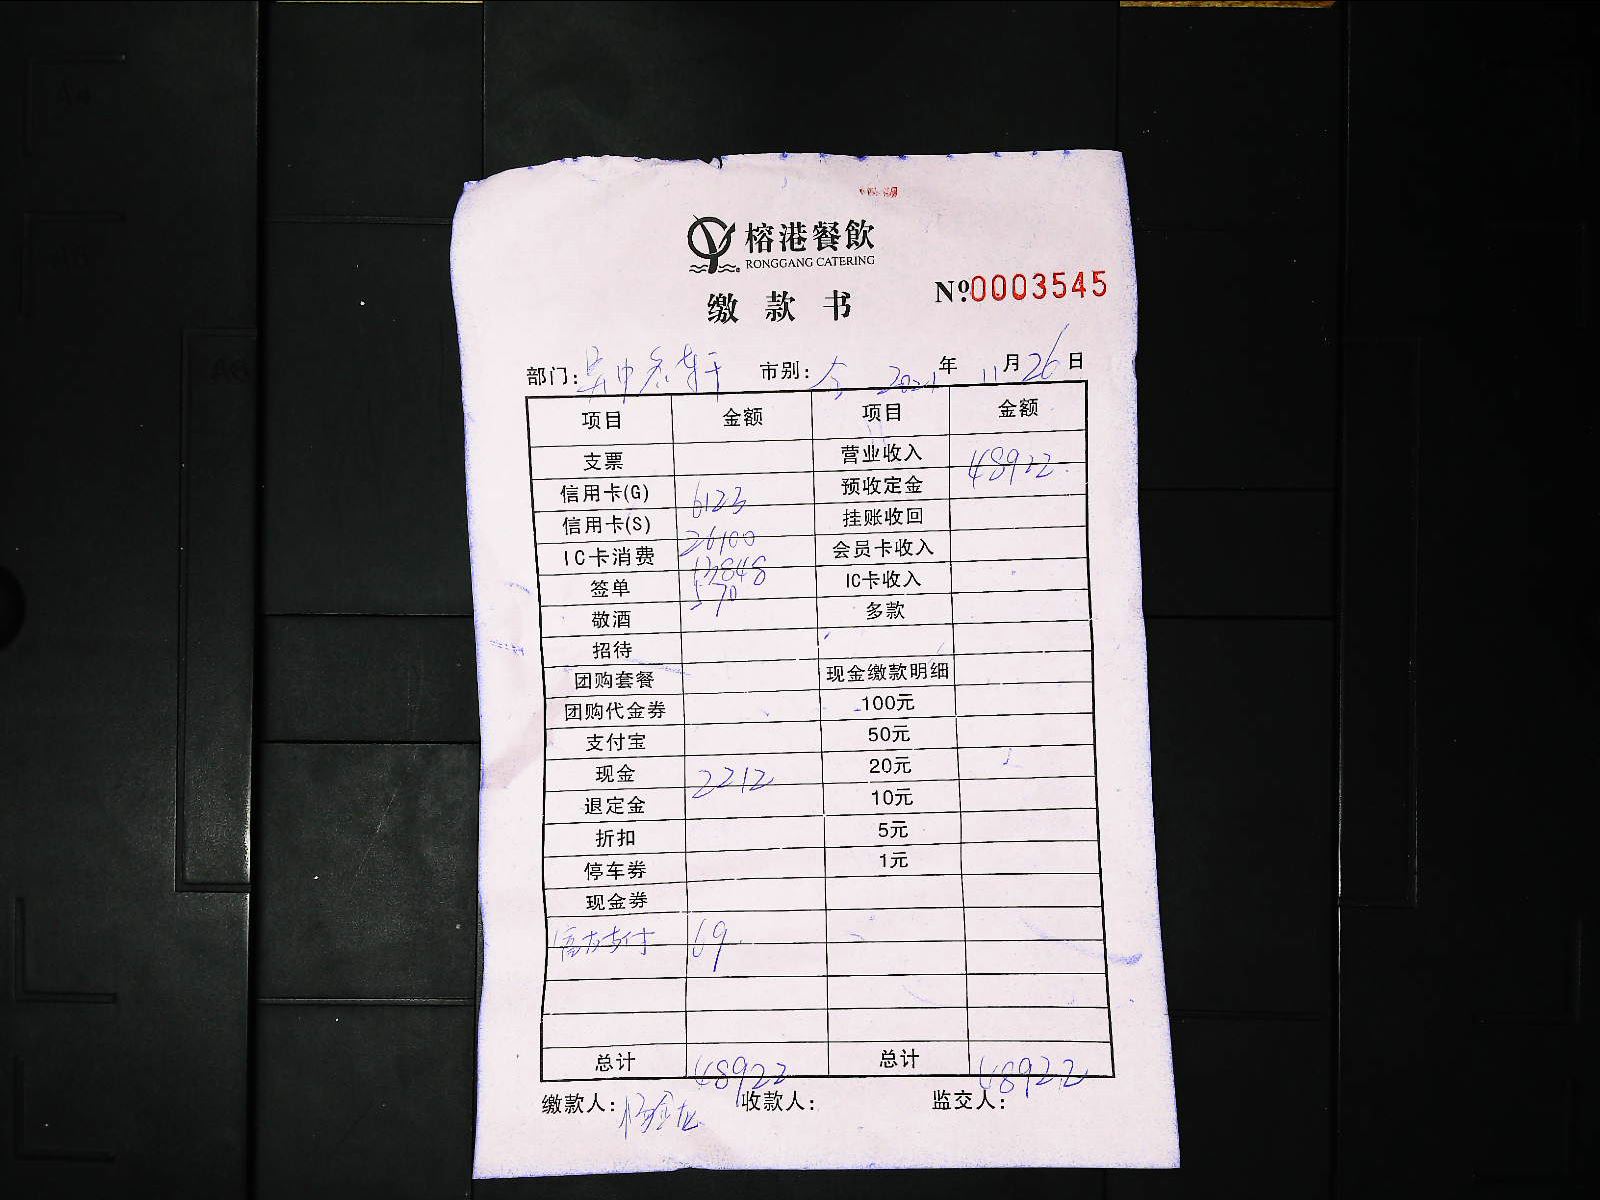 榕港餐飲
RONGGANG CATERING
缴款书
Nº:0003545
部门: 市别: 2021年11月26日
项目 金额 项目 金额
支票 营业收入 48922
信用卡(G) 6123 预收定金
信用卡(S) 26100 挂账收回
IC卡消费 13848 会员卡收入
签单 570 IC卡收入
敬酒 多款
招待
团购套餐 现金缴款明细
团购代金券 100元
支付宝 50元
现金 2212 20元
退定金 10元
折扣 5元
停车券 1元
现金券
官方支付 69
总计 48922 总计 48922
缴款人: 收款人: 监交人: